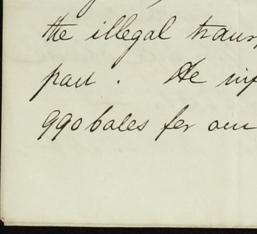 the illegal trans
part. He inf
990 bales for our